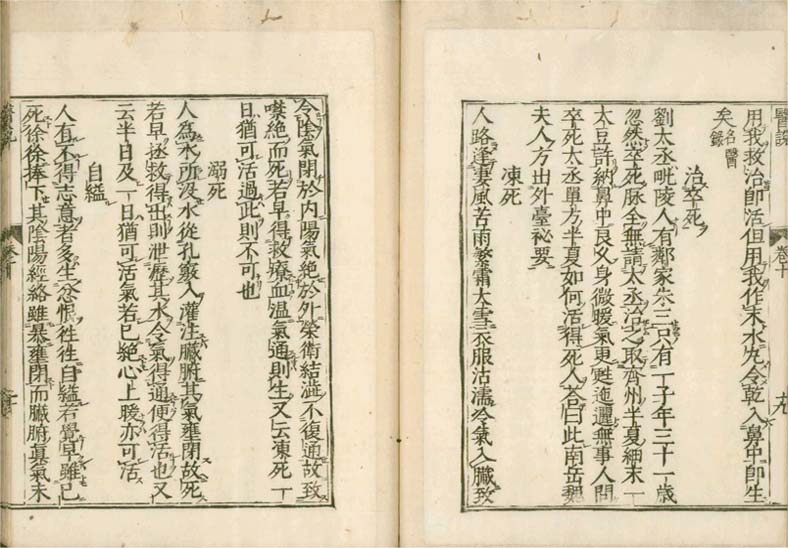 醫說
卷十
十九
用我救治即活但用我作末水丸令乾入鼻中即生
矣名醫錄
治卒死
劉太丞毗陵人有鄰家朱三只有一子年三十一歲
忽然卒死脉全無請太丞治之取齊州半夏細末一
大豆許納鼻中良久身微暖氣更甦迤邐無事人問
卒死太丞單方半夏如何活得死人答曰此南岳魏
夫人方出外臺秘要
凍死
人路逢凄風苦雨繁霜大雪衣服沾濡冷氣入臟致
令陰氣閉於內陽氣絕於外榮衛結澁不復通故致
噤絕而死若早得救療血溫氣通則生又云凍死一
日猶可活過此則不可也
溺死
人為水所沒水從孔竅入灌注臟腑其氣壅閉故死
若早拯救得出則泄瀝其水令氣得通便得活也又
云半日及一日猶可活氣若已絕心上暖亦可活
自縊
人有不得志意者多生忿恨徃徃自縊若覺早雖已
死徐徐捧下其陰陽經絡雖暴壅閉而臟腑真氣未
醫說
卷十